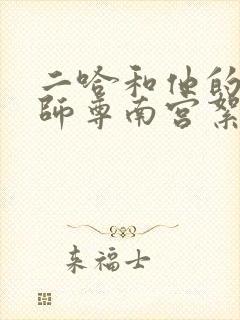 二哈和他的
師尊南宮絮
来福士